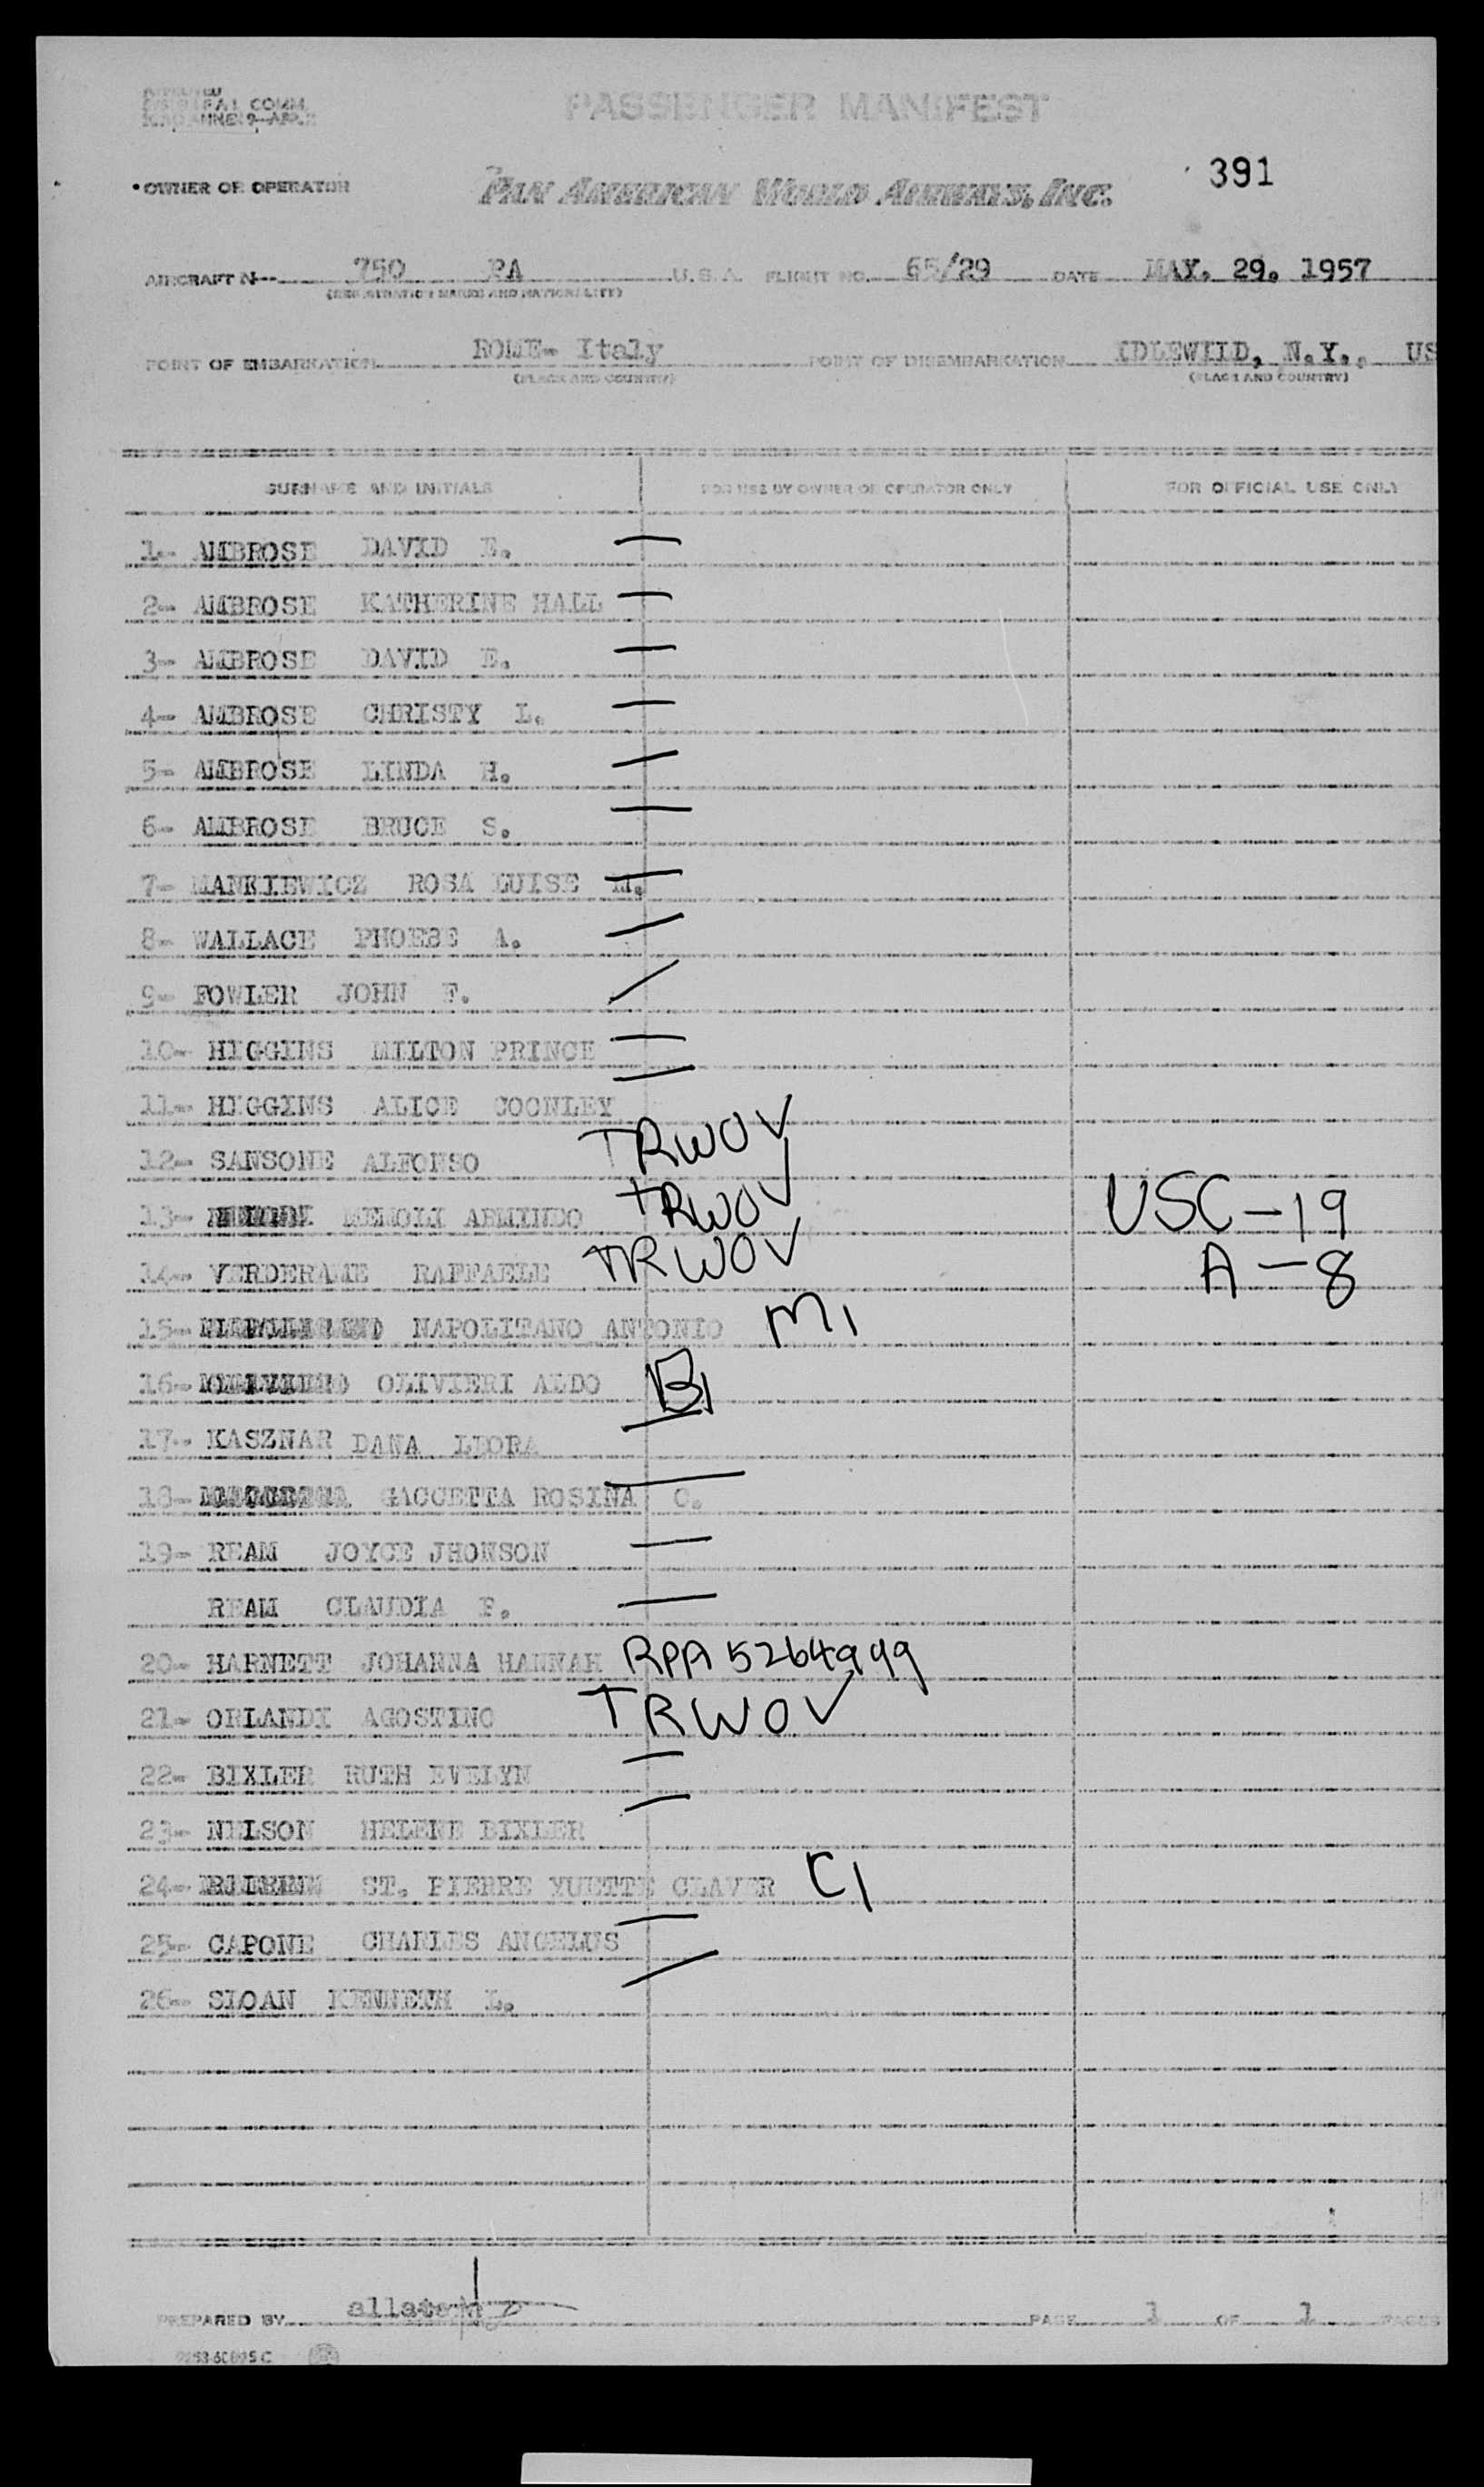 PASSENGER MANIFEST
391
OWNER OR OPERATOR PAN AMERICAN WORLD AIRWAYS, INC.
AIRCRAFT N 750 PA U.S.A. FLIGHT NO. 65/29 DATE MAY. 29. 1957
(REGISTRATION MARKS AND NATIONALITY)
POINT OF EMBARKATION ROME- Italy POINT OF DISEMBARKATION IDLEWILD, N.Y., US
(PLACE AND COUNTRY) (PLACE AND COUNTRY)
SURNAME AND INITIALS FOR USE BY OWNER OR OPERATOR ONLY FOR OFFICIAL USE ONLY
1- AMBROSE DAVID E.
2- AMBROSE KATHERINE HALL
3- AMBROSE DAVID E.
4- AMBROSE CHRISTY L.
5- AMBROSE LINDA H.
6- AMBROSE BRUCE S.
7- MANKIEWICZ ROSA LUISE M.
8- WALLACE PHOEBE A.
9- FOWLER JOHN F.
10- HIGGINS MILTON PRINCE
11- HIGGINS ALICE COONLEY
12- SANSONE ALFONSO TRWOV
13- MEMOLI ARMINDO TRWOV USC-19
14- VERDERAME RAFFAELE TRWOV A-8
15- NAPOLITANO ANTONIO M1
16- OLIVIERI ALDO B1
17- KASZNAR DANA LEORA
18- GACCETTA ROSINA C.
19- REAM JOYCE JHONSON
REAM CLAUDIA F.
20- HARNETT JOHANNA HANNAH RPA 5264999
21- ORLANDI AGOSTINO TRWOV
22- BIXLER RUTH EVELYN
23- NELSON HELENE BIXLER
24- ST. PIERRE YUETTE CLAVER C1
25- CAPONE CHARLES ANGELUS
26- SLOAN KENNETH L.
PREPARED BY PAGE 1 OF 1 PAGES